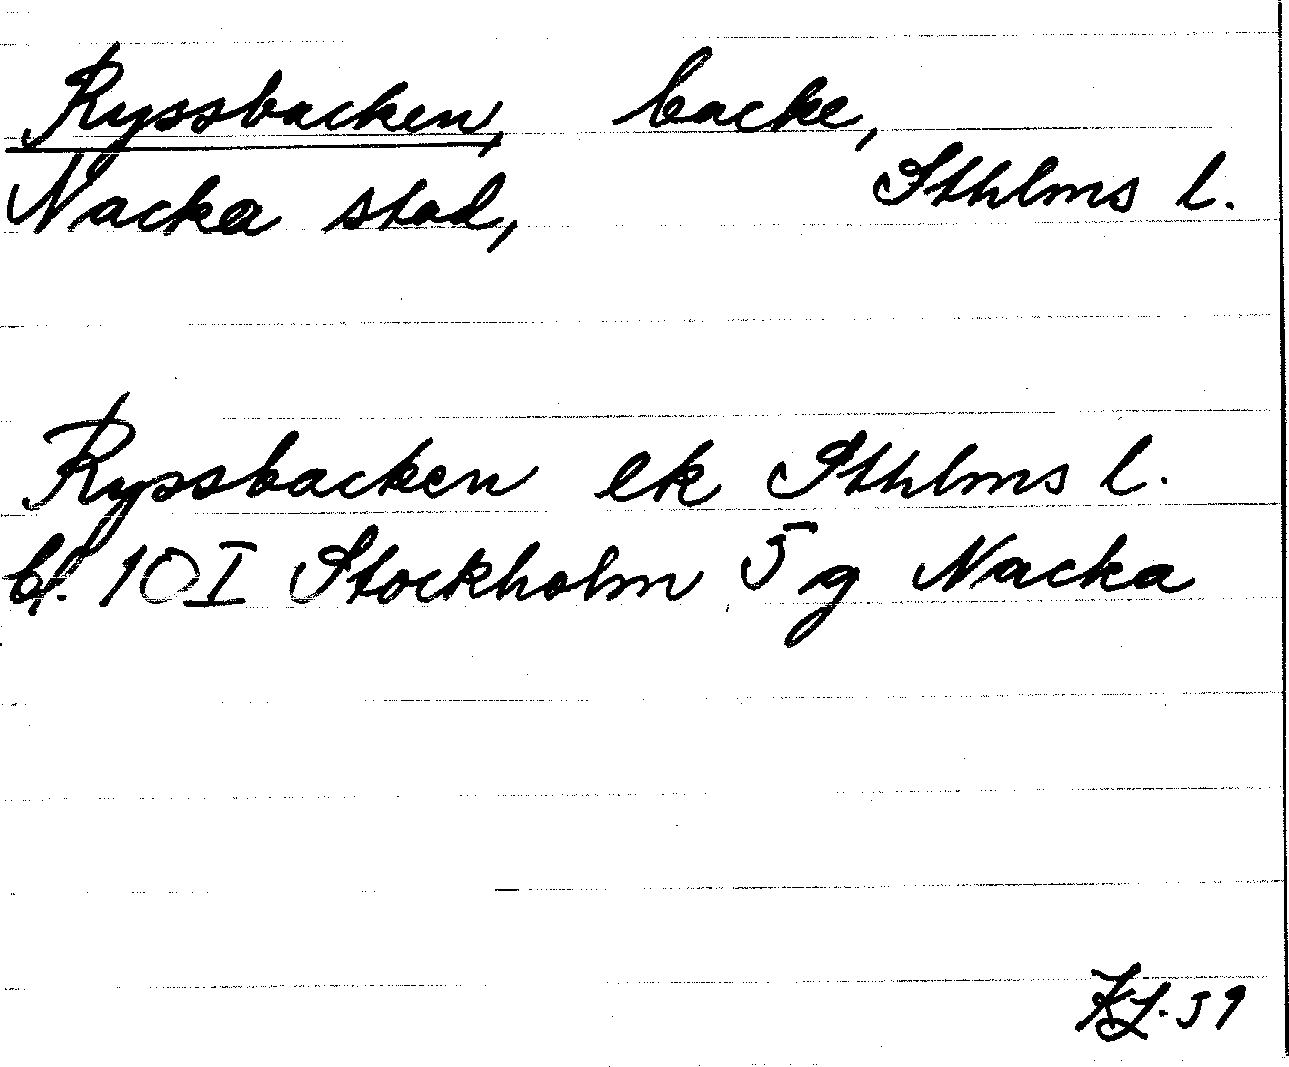 Ryssbacken, backe,
Nacka stad, Sthlms l.
Ryssbacken ek Sthlms l.
bl. 10 I Stockholm 5 g Nacka
KL. 59